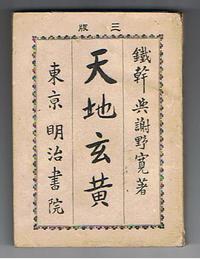 三版
鐵幹 與謝野寬著
天地玄黄
東京 明治書院